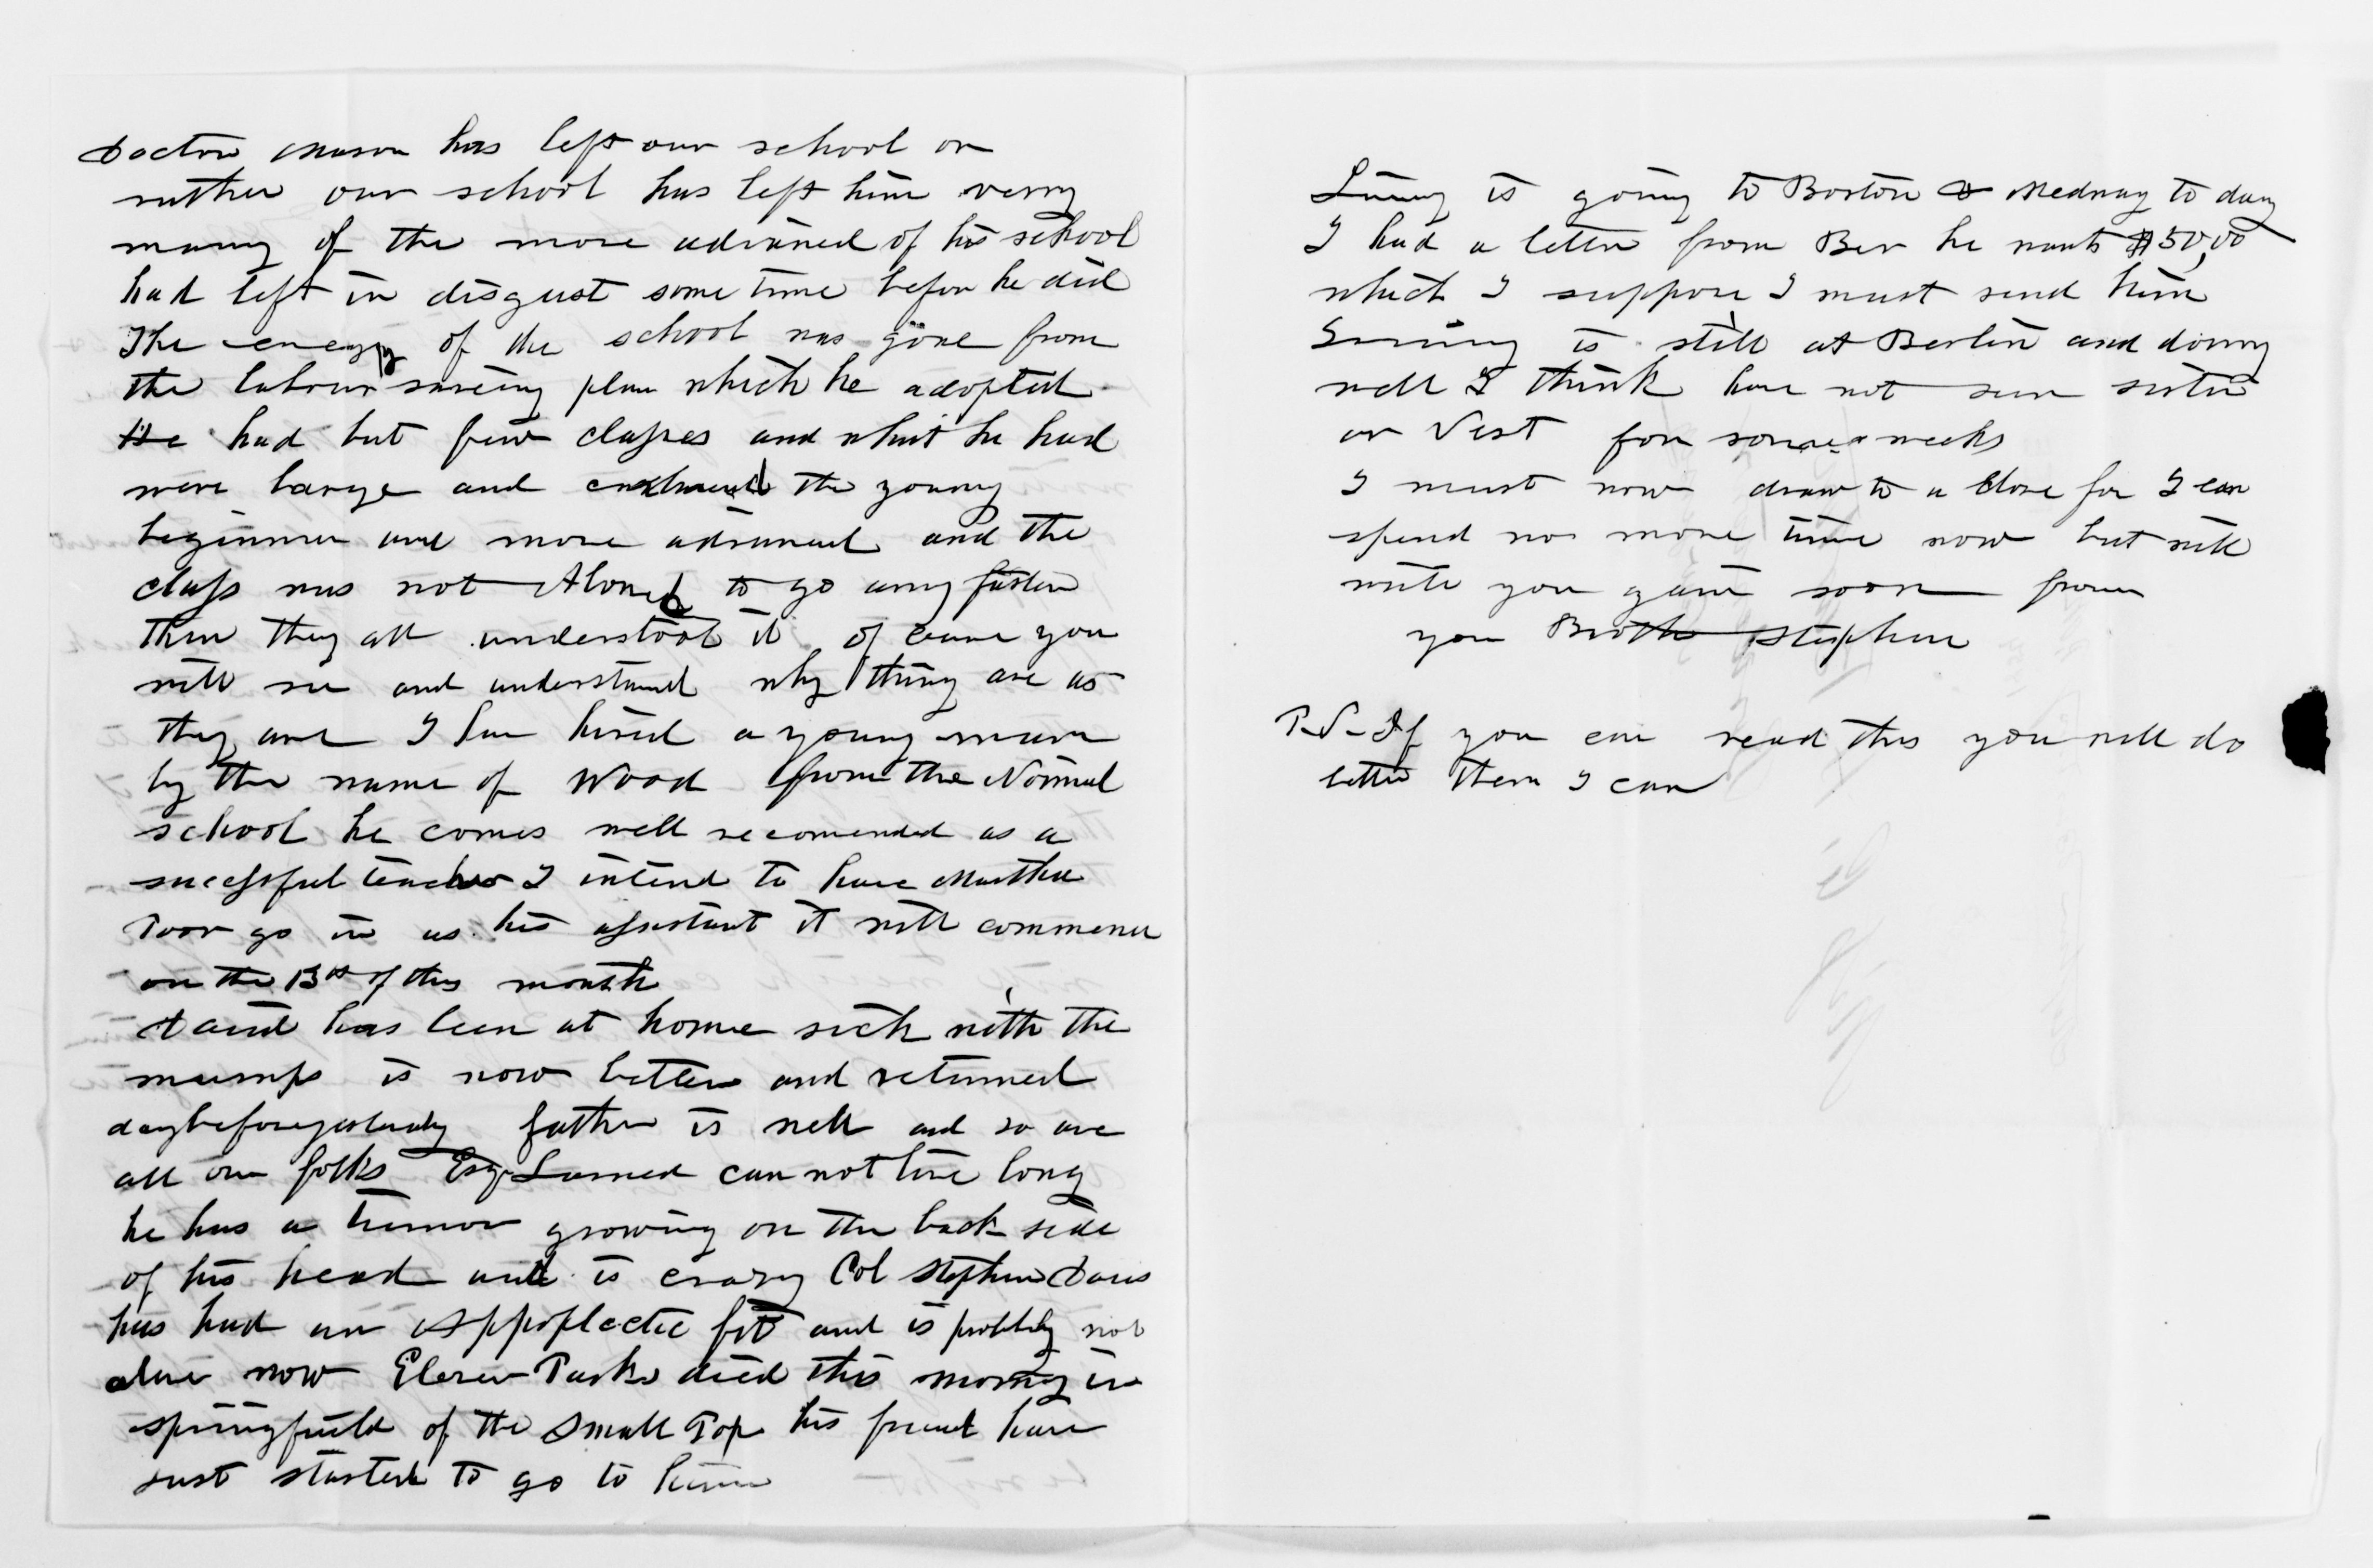 Doctor Mason has left our school or
rather our school has left him verry
many of the more advanced of his school
had left in disgust some time before he did
The energy of the school was gone from
the labour saveing plan which he adopted
He had but few classes and what he had
were large and embraced the young
beginner and more advanced and the
class was not Alowed to go any faster
than they all understood it of course you
will see and understand why thing are as
they are I have hired a young man
by the name of Wood from the Normal
school he comes well recomended as a
sucessful teacher I intend to have Martha
Poor go in as his assistant it will commence
on the 13th of this month
David has been at home sick with the
mumps is now better and returned
daybeforeyesterday father is well and so are
all our folks Esqr Larned can not live long
he has a tumor growing on the back side
of his head and is crazy Col Stephen Davis
has had an Appoplectic fit and is probbly not
alive now Parks died this morning in
springfield of the Small Pox his friend have
Just started to go to him
is going to Boston & Medway to day
I had a letter from Ben he wants $50,00
which I suppose I must send him
is still at Berlin and doing
well I think have not seen sister
or Vest for some weeks
I must now draw to a Close for I can
spend no more time now but will
write you gain soon from
you Brother Stephen
P.S. If you can read this you will do
better then I can